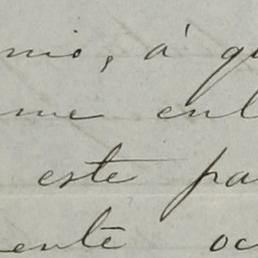 mio, á qu
me enl
este pa
ente oc